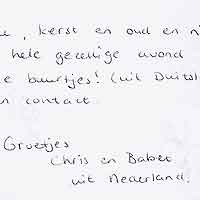 , kerst en oud en n
hele gezellige avond
e buurtjes! (uit Duitsl
n contact.
Groetjes
Chris en Babet
uit Nederland.